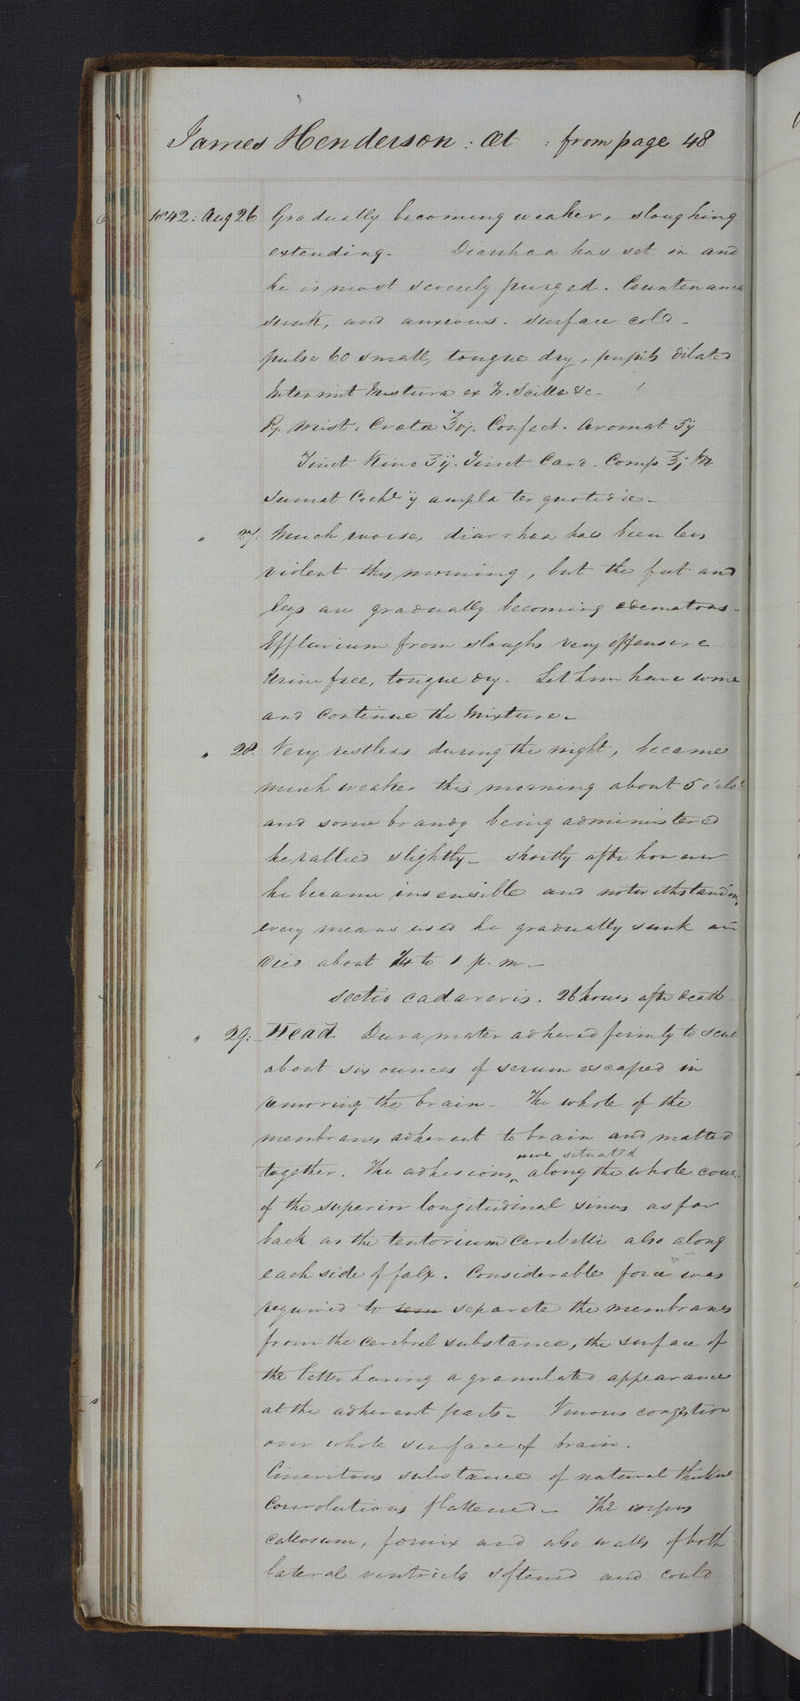 James Henderson : Æt : from page 48
1842: Aug 26 Gradually becoming weaker, sloughing
extending. Diarrhea has set in and
he is most severely purged. Countenance
sunk, and anxious. surface cold -
pulse 60 small, tongue dry, pupils dilated
Intermit Mistura ex Tr. Scillæ &c -
Rx. Mist. Cretæ ℥vj. Confect. Aromat ʒij
Tinct Kino ʒij. Tinct Card. Comp ℥j M
Sumat Cochl ij ampla ter quotidie -
" 27. Much worse, diarrhea has been less
violent this morning, but the feet and
legs are gradually becoming edematous -
Effluvium from sloughs very offensive
Urine free, tongue dry. Let him have wine
and continue the Mixture -
" 28. Very restless during the night, became
much weaker this morning about 5 o'clo:
and some brandy being administered
he rallied slightly - shortly after however
he became insensible and notwithstanding
every means used he gradually sunk and
died about 1/4 to 1 p. m -
Sectio cadaveris. 26 hours after death.
" 29: Head. Dura mater adhered firmly to scul
about six ounces of serum escaped in
removing the brain - The whole of the
membranes adherent to brain and matted
were situated
together. The adhesions along the whole cour:
of the superior longitudinal sinus as far
back as the tentorium cerebelli also along
each side of falx. Considerable force was
required to separate the membranes
from the cerebrel substance, the surface of
the latter having a granulated appearance
at the adherent parts - Venous congestion
over whole surface of brain.
Cineritous substance of natural thickne
Convolutions flattened - The corpus
callosum, fornix and also walls of both
lateral ventricles softened and could